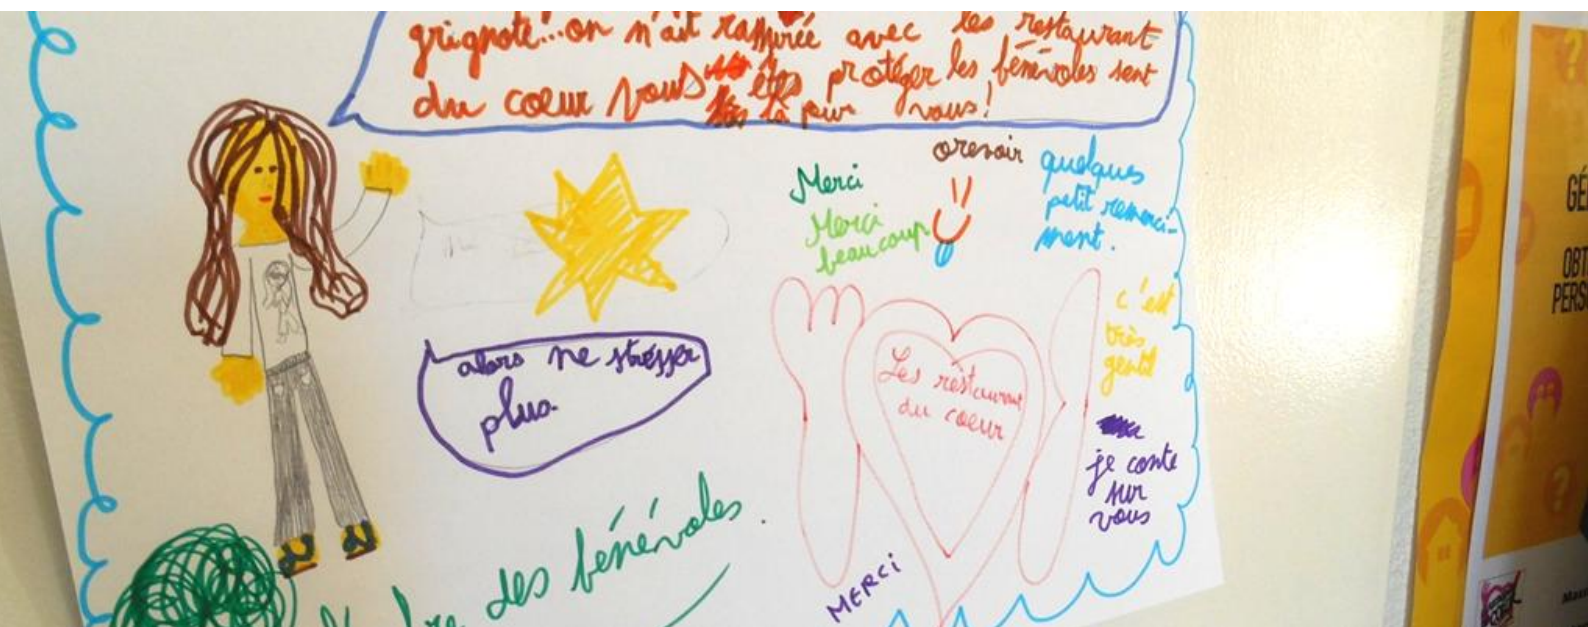 grignote!...on n'ait rassurée avec les restaurant
du coeur vous êtes protéger les bénévoles sont
là pour vous!
orevoir
Merci
Merci
beaucoup
quelques
petit remerci-
ment.
alors ne strésser
plus.
Les réstaurant
du coeur
c'est
très
gentil
je conte
sur
vous
des bénévoles.
MERCI
GÉ
OBT
PERS